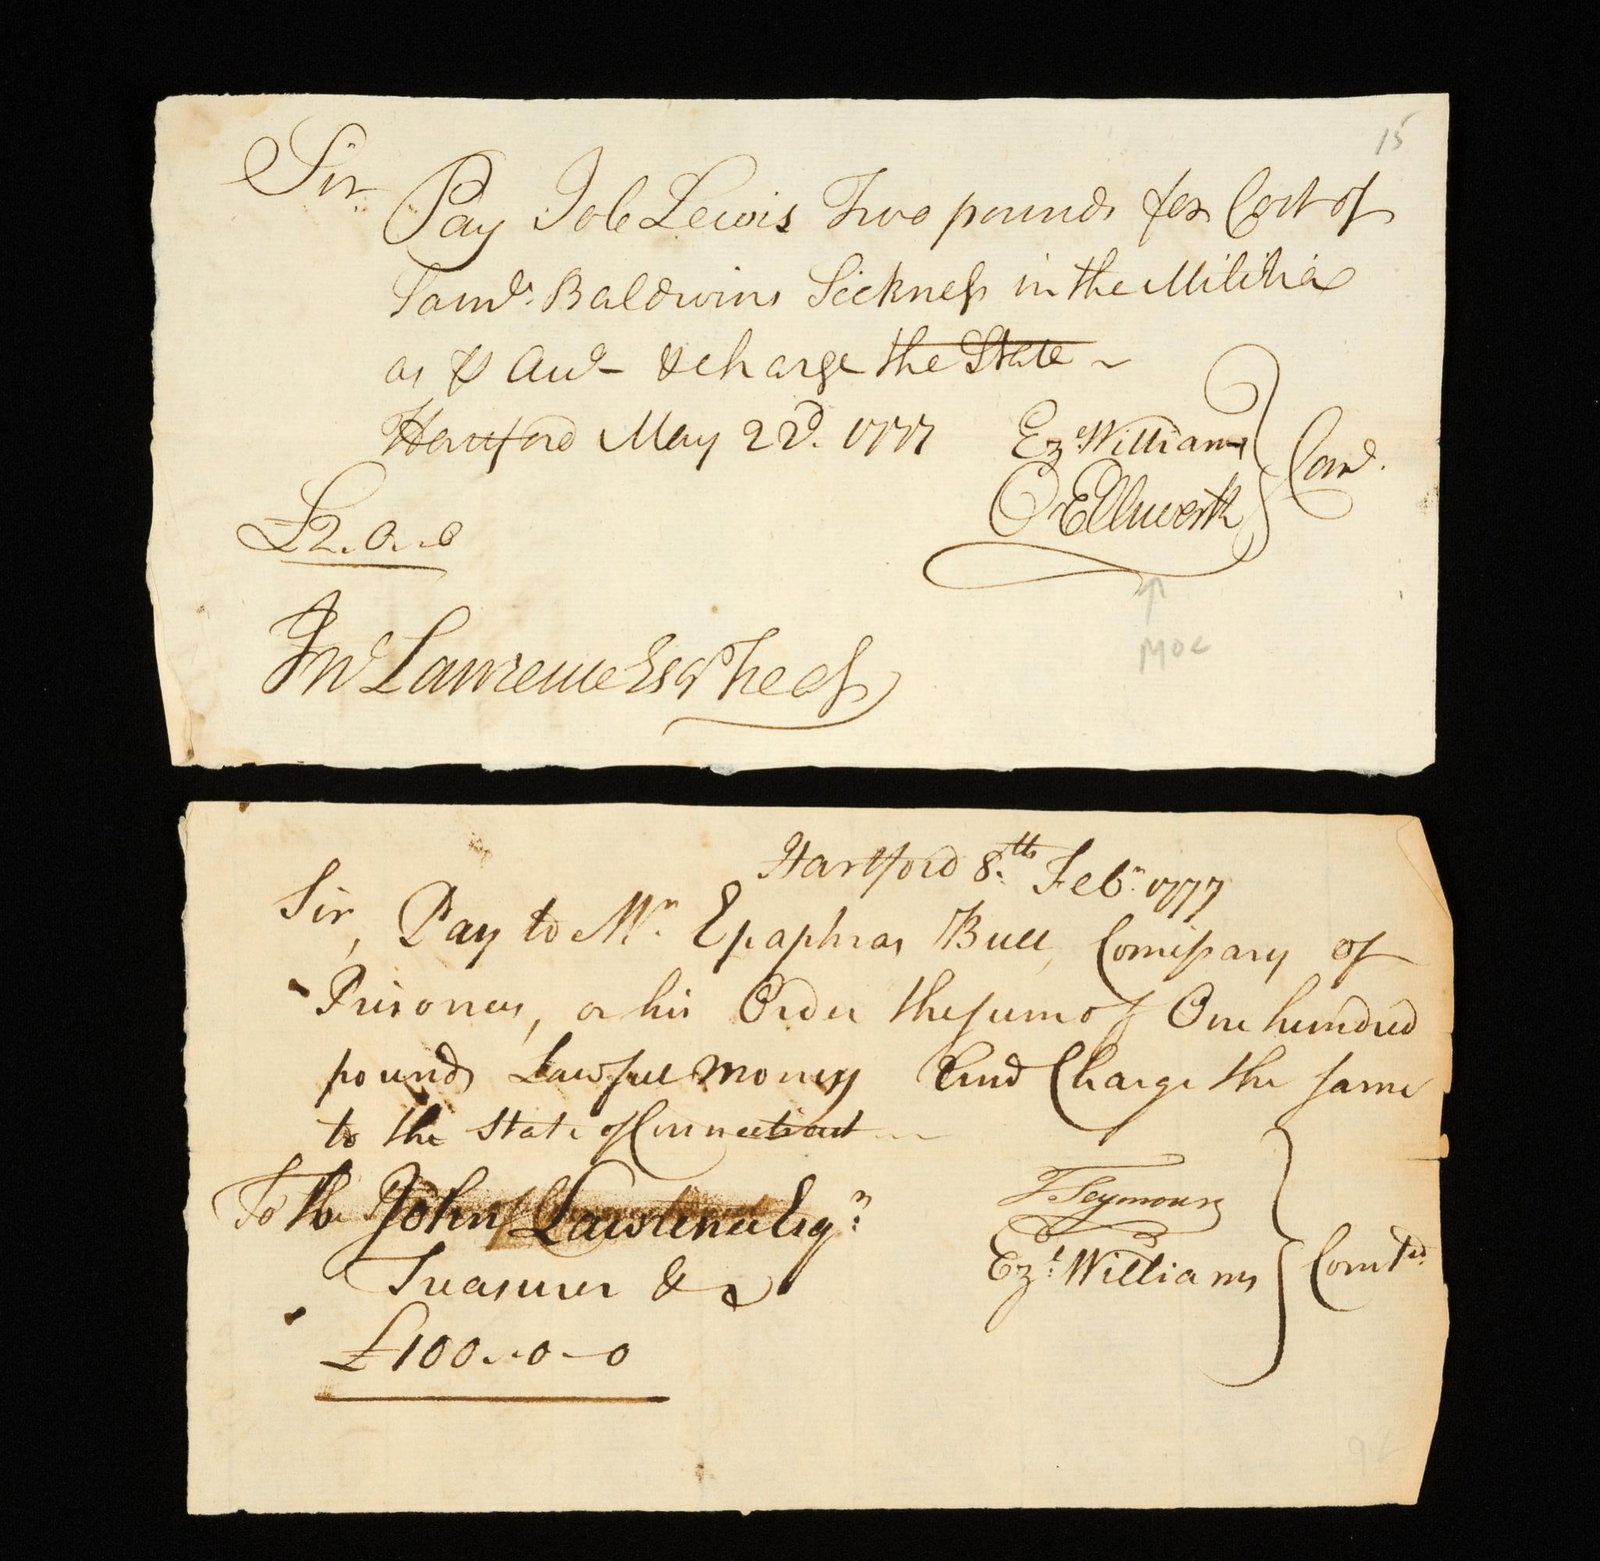 15
Sir
Pay Job Lewis Two pounds for Cost of
Saml. Baldwins Sickness in the Militia
as ⅌ Acct & charge the State
Hartford May 22d. 1777
Ez Williams
O Ellsworth
Com.
£2.0.0
MOC
Jno Lawrence Esqr Treasr
Hartford 8.th Febr. 1777
Sir, Pay to Mr. Epaphras Bull, Comissary of
Prisoners, or his Order the sum of One hundred
pounds Lawfull money And Charge the same
to the State of Connecticut
To John Lawrence Esqr.
Treasurer &c
T Seymour
Ezl. Williams
Comtee.
£100..0-0